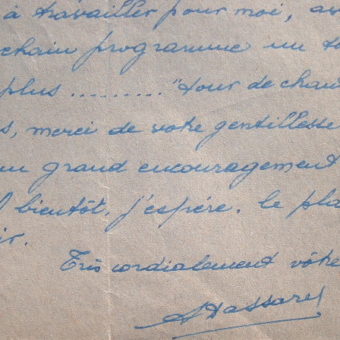 à travailler pour moi, av
chain programme un to
plus ......... "tour de chan
s, merci de votre gentillesse
un grand encouragement
A bientôt, j'espère, le pla
ir.
Très cordialement vôtre